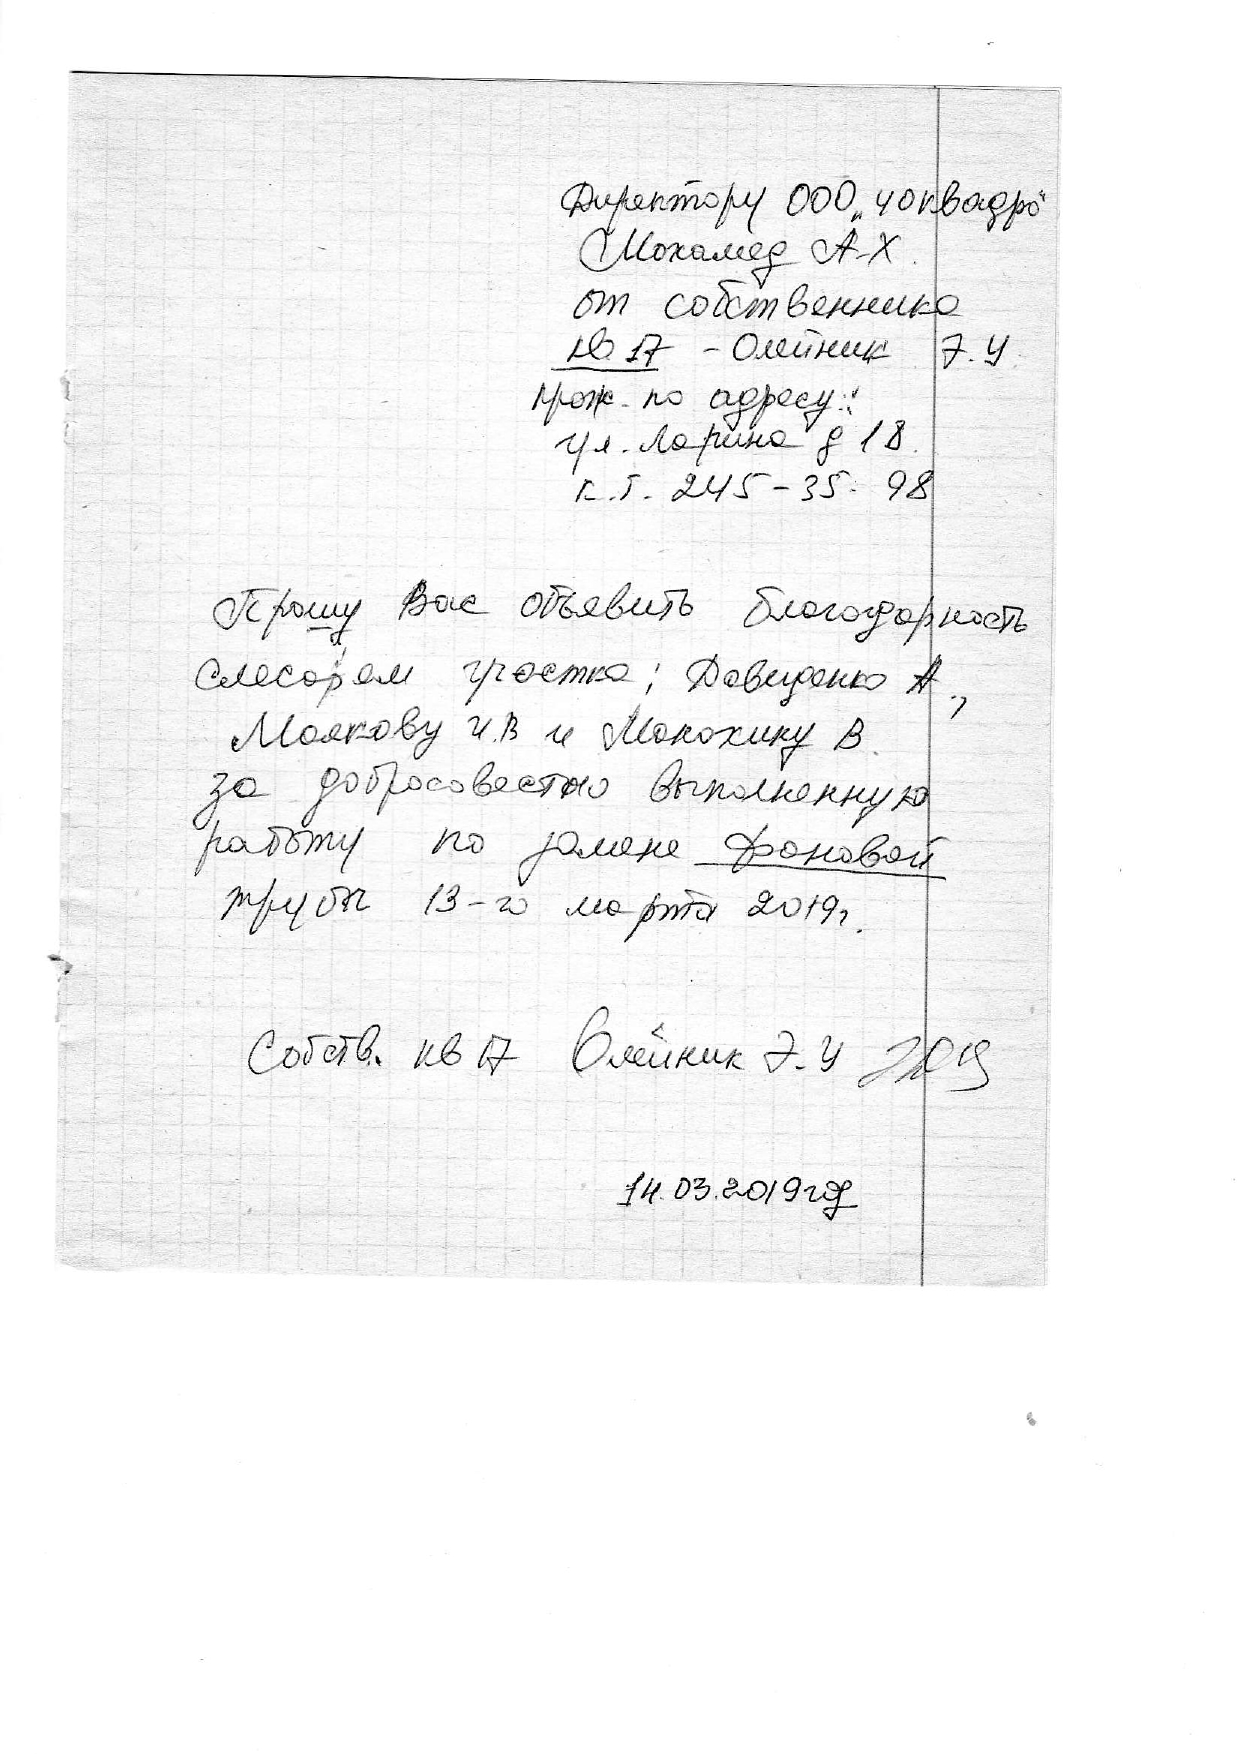 Директору ООО „ЧОКвадро"
Мохамед А-Х.
от собственника
кв 17 - Олейник Э.У.
прож. по адресу:
ул. Ларина д 18.
к.т. 245-35-98
Прошу Вас объявить благодарность
слесарям участка: Давиденко А.,
Маякову И.В и Монохину В.
за добросовестно выполненную
работу по замене фоновой
трубы 13-го марта 2019г.
Собств. кв 17 Олейник Э.У
14.03.2019год